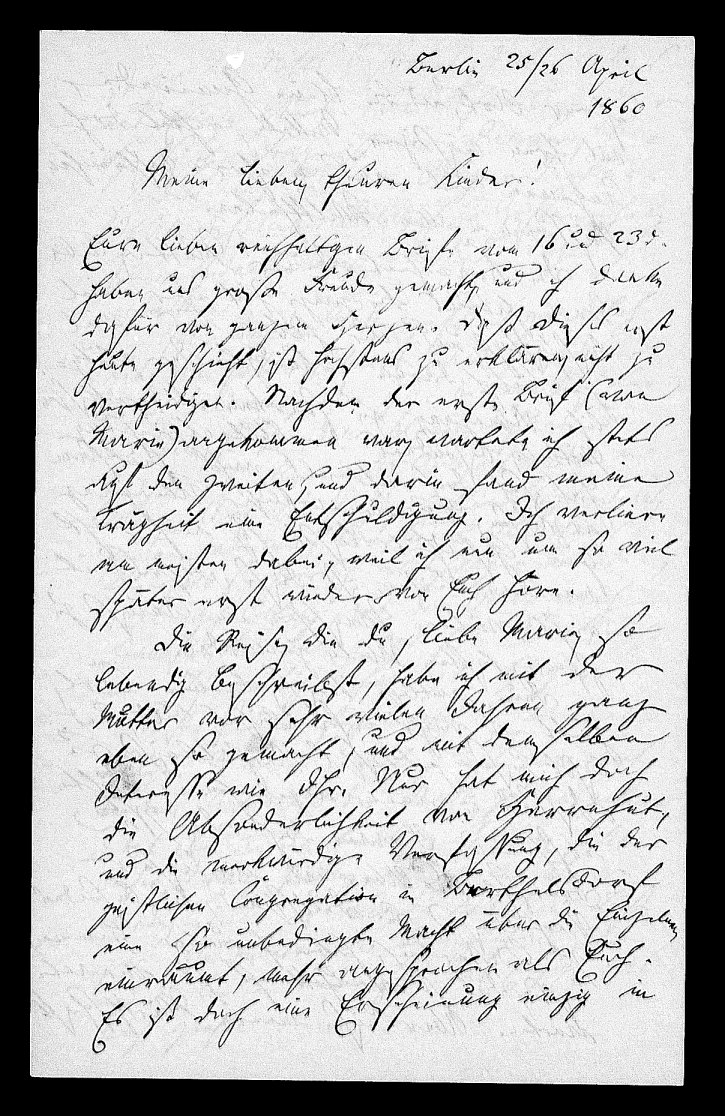 Berlin 25/26 April
1860
Meine lieben, theuren Kinder!
Eure lieben reichhaltigen Briefe vom 16 und 23 d.
haben uns große Freude gemacht, und ich danke
dafür von ganzem Herzen. Daß dieses erst
heute geschieht, ist höchstens zu erklären, nicht zu
vertheidigen. Nachdem der erste Brief (von
Marie) angekommen war, wartete ich stets
auf den zweiten, und darin fand meine
Trägheit eine Entschuldigung. Ich verliere
am meisten dabei, weil ich nun um so viel
später erst wieder von Euch höre.
Die Reise, die du, liebe Marie, so
lebendig beschreibst, habe ich mit der
Mutter vor sehr vielen Jahren ganz
eben so gemacht, und mit demselben
Interesse wie Ihr. Nur hat mich doch
die Absonderlichkeit von Herrnhut,
und die merkwürdige Verfassung, die der
geistlichen Congregation in Berthelsdorf
eine so unbedingte Macht über die Einzelnen
einräumt, mehr angesprochen als Euch.
Es ist doch eine Erscheinung einzig in